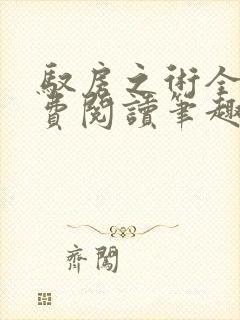 馭房之術全
費閱讀筆趣
齊闖